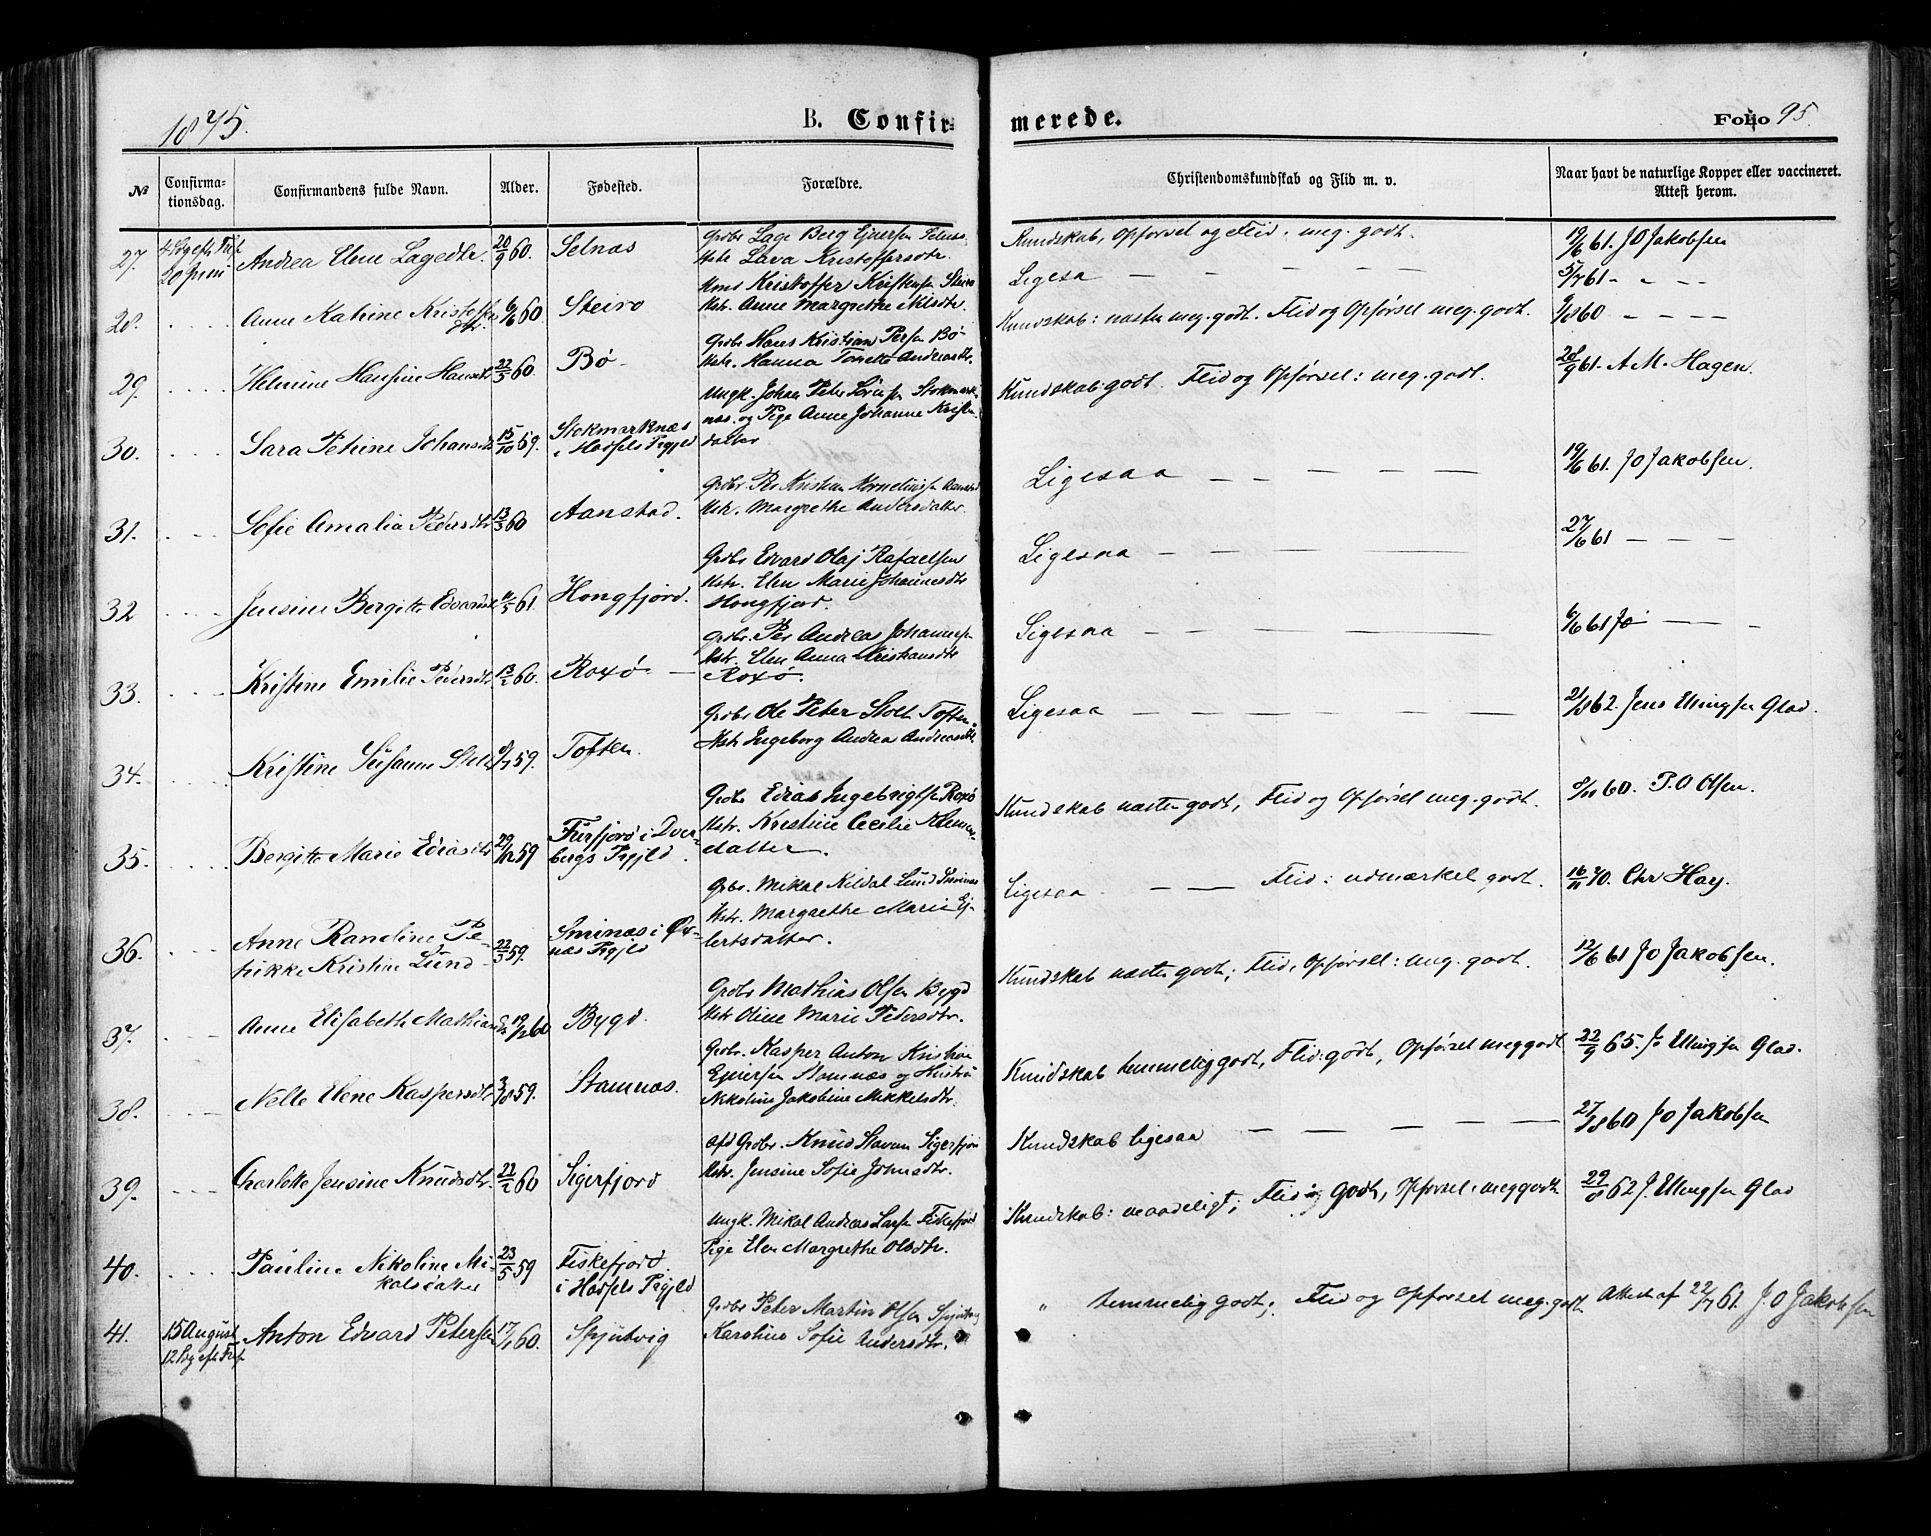 1875.
B. Confirmerede.
Folio 95.
№
Confirmationsdag.
Confirmandens fulde Navn.
Alder.
Fødested.
Forældre.
Christendomskundskab og Flid m. v.
Naar havt de naturlige Kopper eller vaccineret. Attest herom.
27. 4 Sdg efter Tref. 20 Juni Andrea Elene Lagedtr. 20/9 60. Selnæs
Grdbr Lage Berg Ejlertsen
Hstr Lava Kristoffersdtr.
Kundskab, Opførsel og Flid: meg. godt.
19/6 61. J O Jakobsen
28. Anne Katrine Kristoffersdtr. 6/6 60 Steiro
Kristoffer Steiro
Hstr. Anne Margrethe Nilsdtr
Ligesaa — — — — — —
5/7 61 - - - -
29. Helmine Hansine Hansdtr 22/5 60. Bø
Grdbr Hans Kristian Persen Bø
Hstr. Hanna Andreasdtr.
Kundskab: næsten meg. godt. Flid og Opførsel meg. godt.
9/8 60 - - - -
30. Sara Petrine Johansdtr 15/10 59. Stokmarknæs i Hadsels Prgjld
Ungk. Johan Peter Stokmarknæs. og Pige Anne Johanne Kristendatter
Kundskab: godt. Flid og Opførsel: meg. godt.
28/9 61. A M. Hagen.
31. Sofie Amalia Pedersdtr 13/3 60 Aanstad.
Grdbr. Per Kristian Korneliussen Aanstad
Hstr. Margrethe Andersdatter.
Ligesaa — — — — —
19/6 61. J O Jakobsen.
32 Jensine Bergitte Edvardsdtr 11/5 61. Hongfjord.
Grdbr Edvard Olaj Rafaelsen
Hstr. Elen Marie Johannesdtr
Hongfjord.
Ligesaa — — — — —
27/6 61 — — —
33. Kristine Emilie Pedersdtr 13/2 60. Roxø
Grdbr. Per Andreas Johannesen
Hstr. Elen Anna Kristiansdtr
Roxø.
Ligesaa — — — — —
6/6 61 JO — — —
34. Kristine Susanne Stolt 9/7 59. Toften.
Grdbr Ole Peter Stolt Toften.
Hstr Ingeborg Andrea Andreasdtr.
Ligesaa — — — — —
21/8 62. Jens Ellingsen Glad.
35. Bergitte Marie Ediasdtr 29/12 59 Finfjord i Dverbergs Prgjld.
Grdbr Edias Ingebrigtsen Roxø
Hstr. Kristine Cecilie Klemendatter.
Kundskab næsten godt, Flid og Opførsel meg. godt.
8/11 60. P. O Olsen.
36. Anne Randine Petrikke Kristine Lund 22/3 59. Smines i Øxnæs Prgjld
Grbr. Mikal Kildal Lund Smines
Hstr. Margrethe Marie Ejlertsdatter.
Ligesaa — — Flid: udmærket godt.
16/11 70. Chr Hay.
37. Anne Elisabeth Mathiasdtr 19/12 60 Bygd.
Grdbr Mathias Olsen Bygd
Hstr Oline Marie Pedersdtr.
Kundskab næsten godt; Flid, Opførsel: meg. godt.
12/6 61 J O Jakobsen.
38. Nelle Elene Kaspersdtr 3/8 59. Stamnæs.
Grdbr. Kasper Anton Kristian
Ejlertsen Stamnæs og Hustru
Nikoline Jakobine Mikkelsdtr.
Kundskab temmelig godt, Flid: godt, Opførsel meg godt
22/9 65. J. Ellingsen Glad.
39. Charlotte Jensine Knudsdtr. 22/2 60 Sigerfjord
Afd Grdbr. Knud Slavum Sigerfjord
Hstr. Jensine Sofie Johnsdtr.
Kundskab ligesaa — — — — —
27/8 60 J. O Jakobsen
40. Pauline Nikoline Mikalsdatter 23/5 59 Fiskefjord i Hadsels Prgjld
Ungk. Mikal Andreas Larsen Fiskefjord
Pige Elen Margrethe Olsdtr.
Kundskab: maadeligt; Flid godt, Opførsel: meg godt
29/8 62 J. Ellingsen Glad
41. 15 August 12 Sdg eft Tref. Anton Edvard Petersen 17/1 60. Spjutvig
Grdbr Peter Martin Olsen Spjutvig
Karoline Sofie Andersdtr.
" temmelig godt; Flid og Opførsel meg. godt
Attest af 22/7 61. J. O Jakobsen